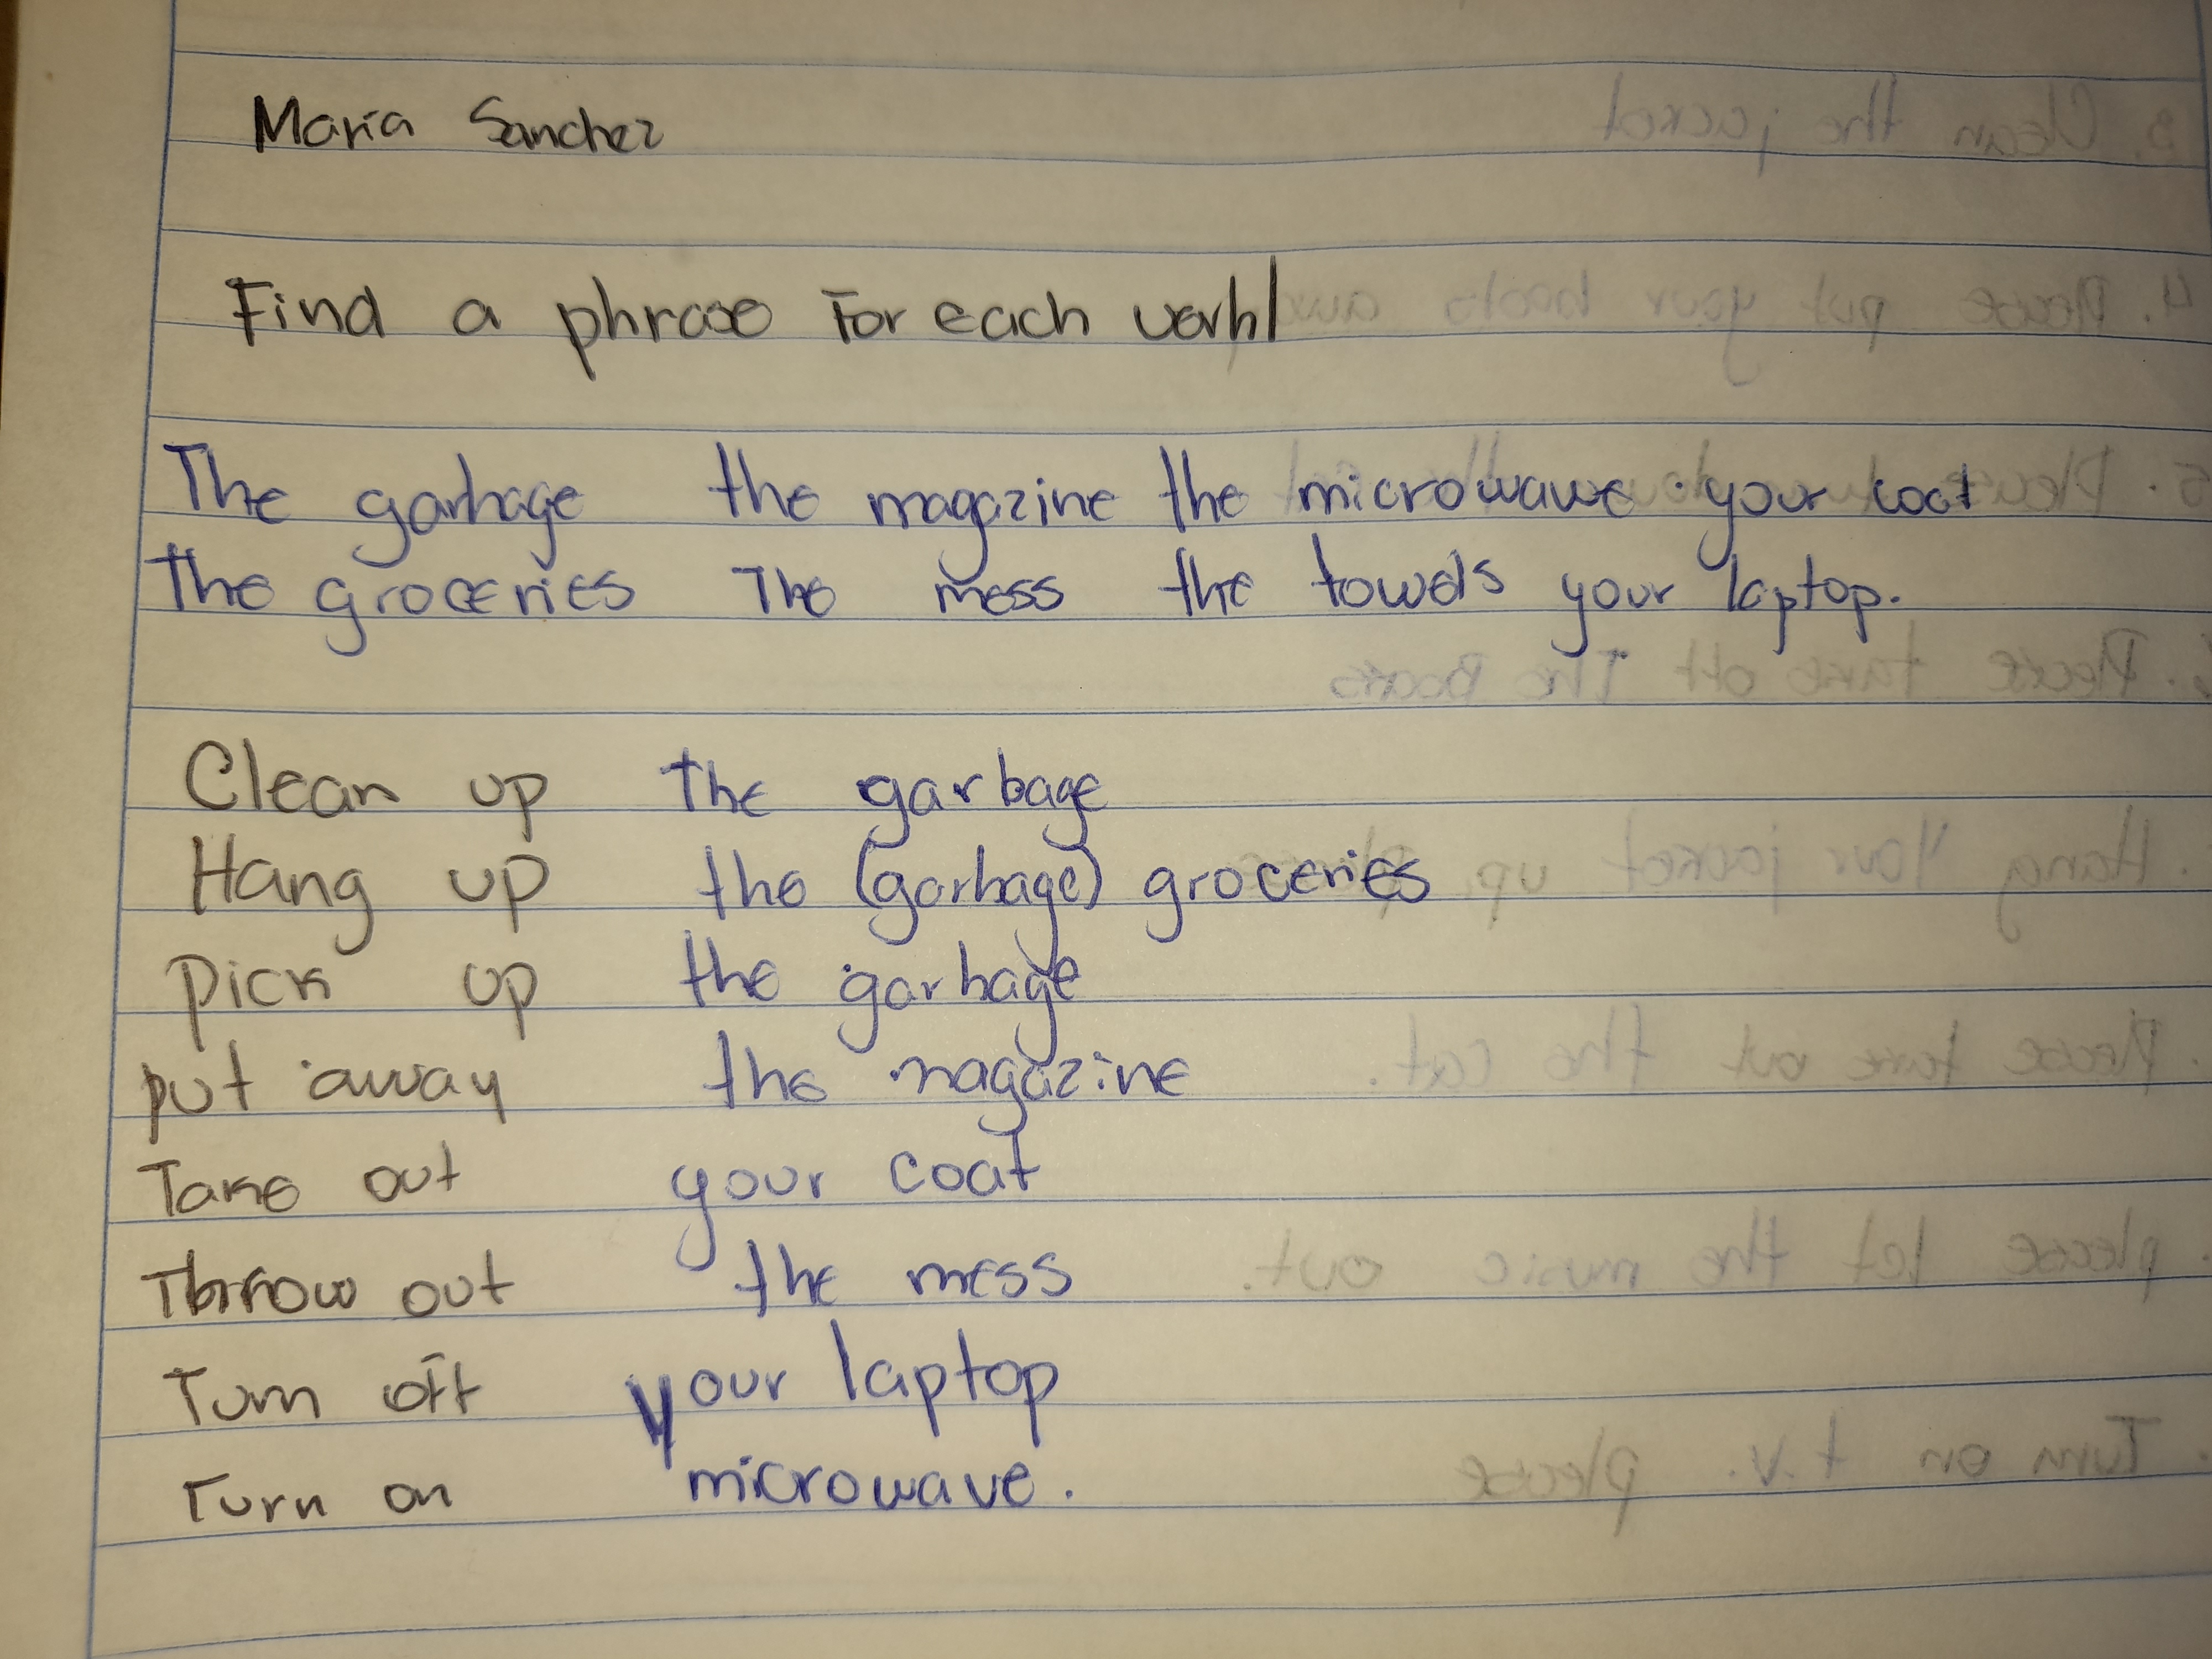 Maria Sanchez
Find a phrase For each verb
The garbage the magazine the microwave. your coat
The groceries The mess the towels your laptop.
Clean up the garbage
Hang up the (garbage) groceries
Pick up the garbage
put away the magazine
Take out your coat
Throw out the mess
Turn off your laptop
Turn on microwave.